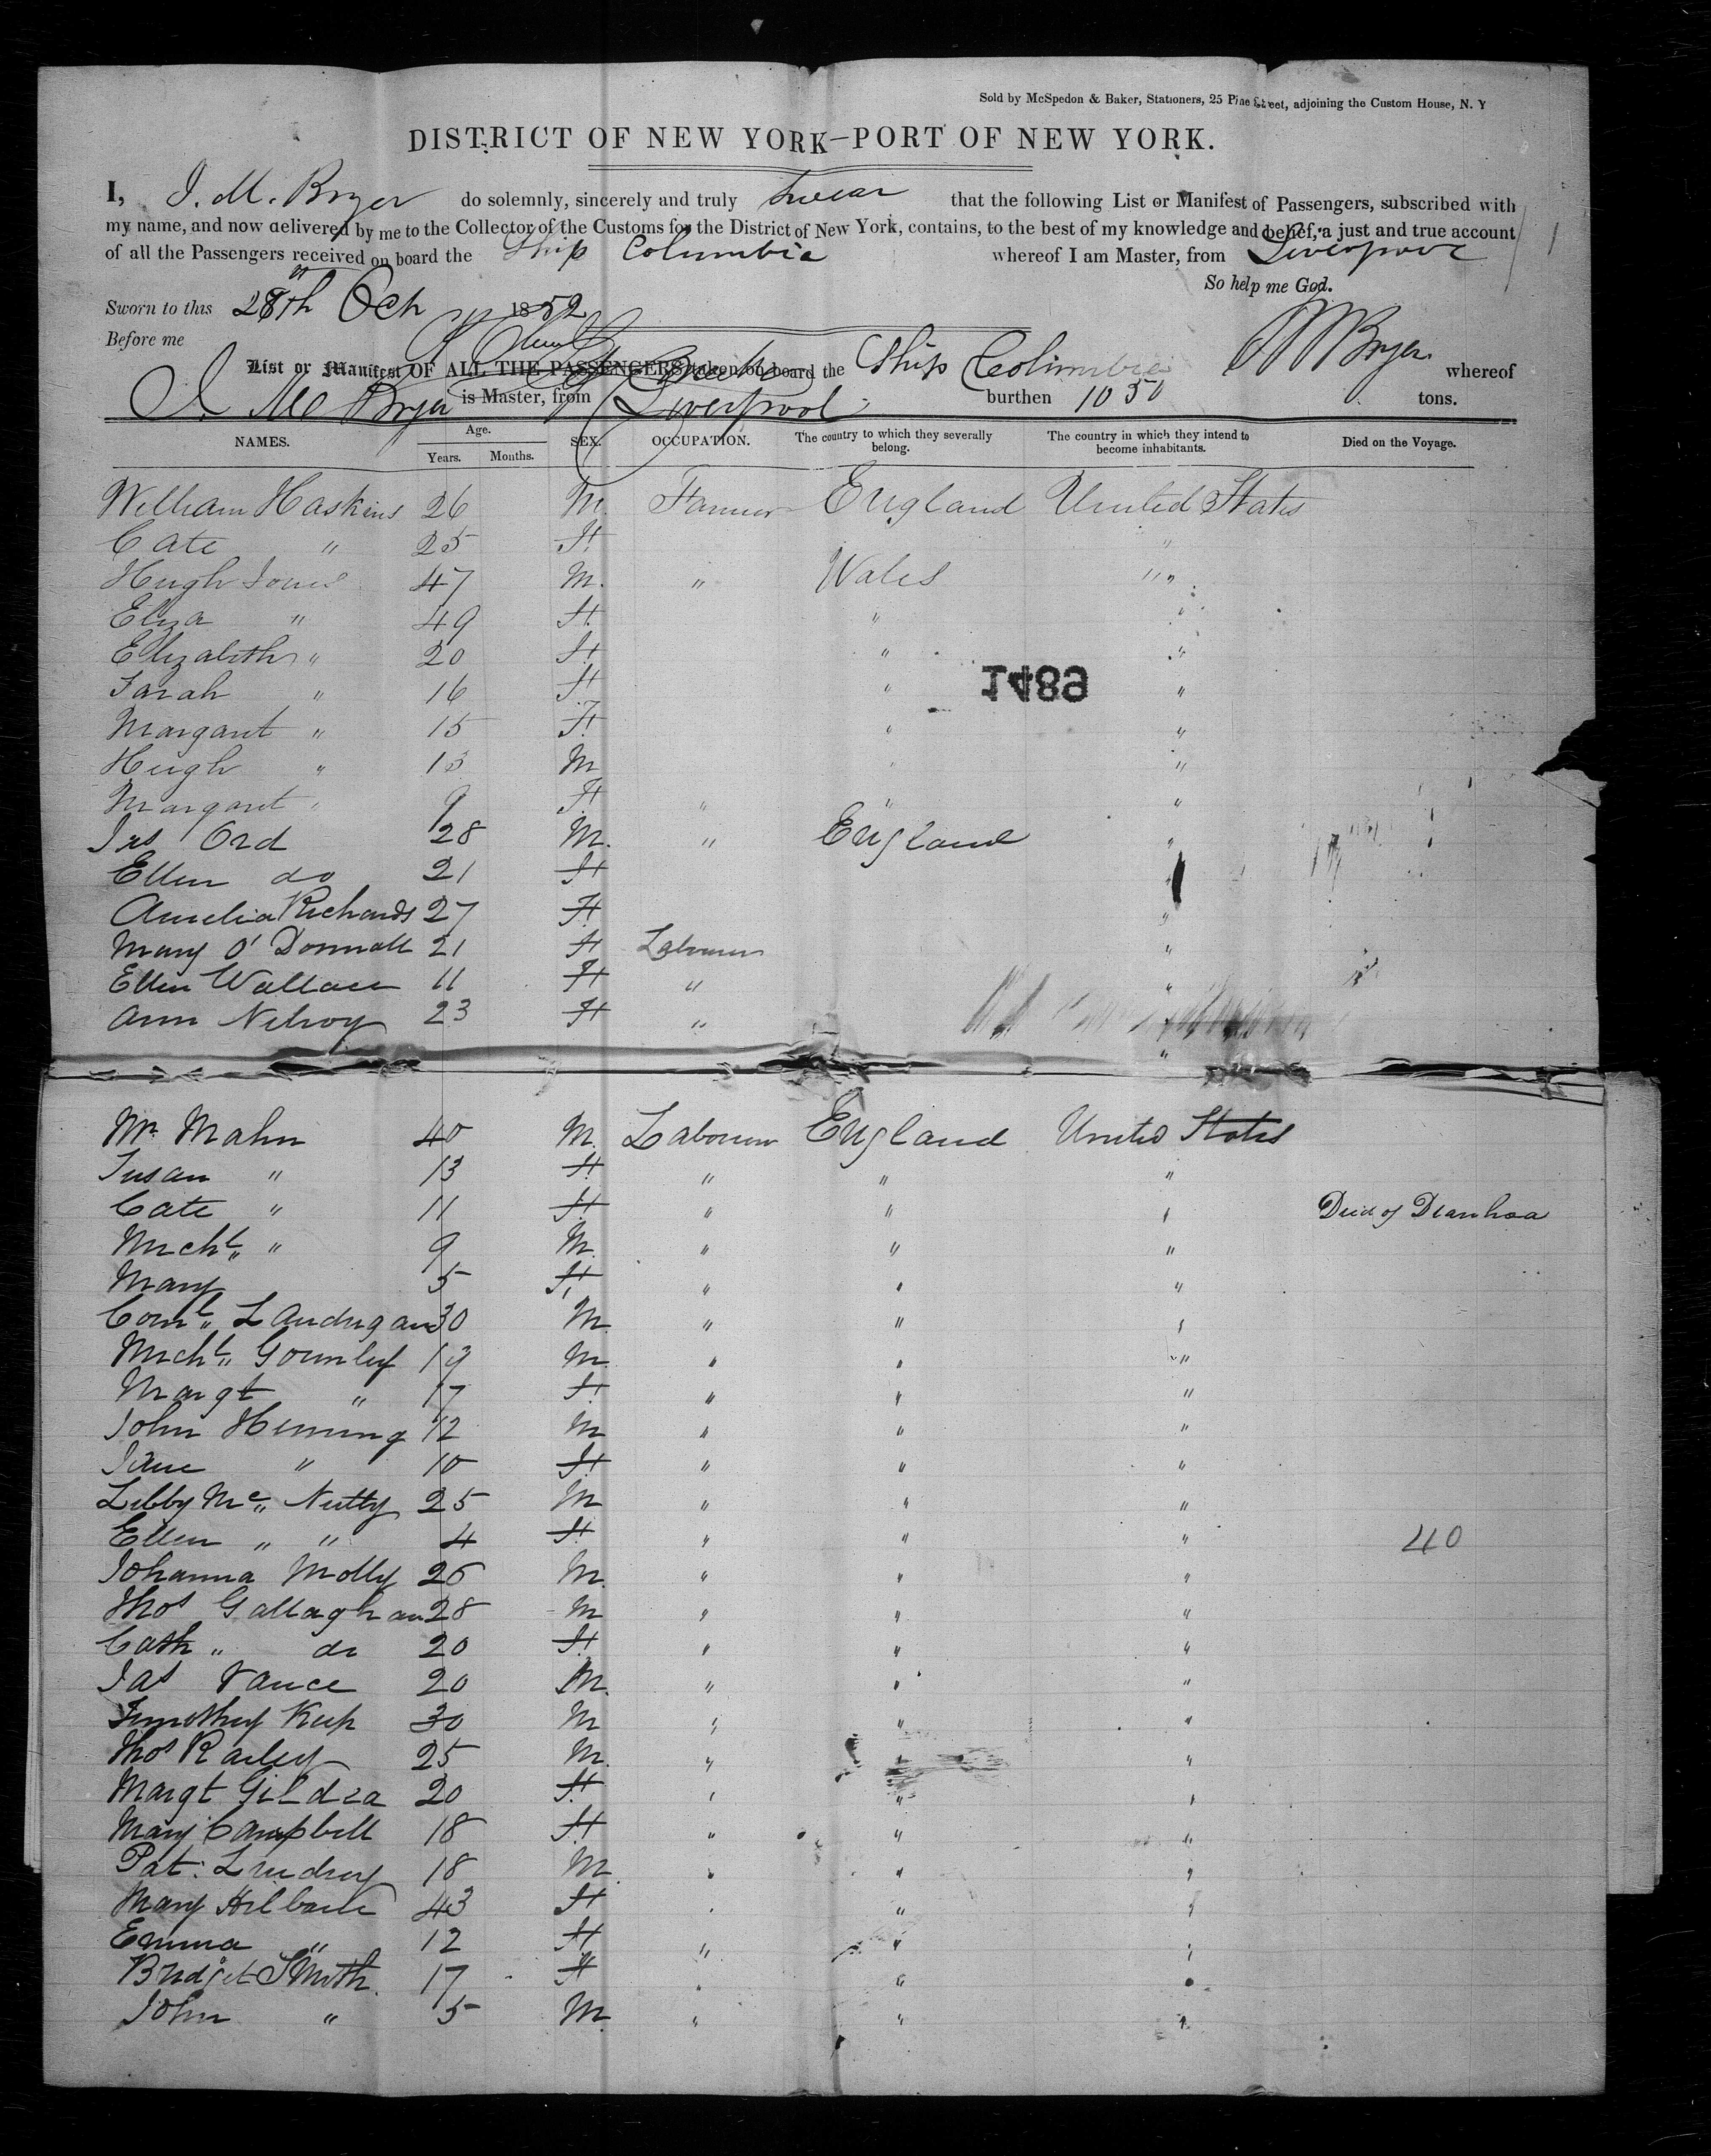 Sold by McSpedon & Baker, Stationers, 25 Pine Street, adjoining the Custom House, N. Y
DISTRICT OF NEW YORK—PORT OF NEW YORK.
I, J. M. Bryer do solemnly, sincerely and truly swear that the following List or Manifest of Passengers, subscribed with
my name, and now delivered by me to the Collector of the Customs for the District of New York, contains, to the best of my knowledge and belief, a just and true account
of all the Passengers received on board the Ship Columbia whereof I am Master, from Liverpool
So help me God.
Sworn to this 28th Oct 1852
Before me
Bryer
List or Manifest OF ALL THE PASSENGERS taken on board the Ship Columbia whereof
J. M Bryer is Master, from Liverpool burthen 1050 tons.
NAMES. Age. Years. Months. SEX. OCCUPATION. The country to which they severally belong. The country in which they intend to become inhabitants. Died on the Voyage.
William Haskins 26 M. Farmer England United States
Cate " 25 F. "
Hugh Jones 47 M. " Wales "
Eliza " 49 F. " "
Elizabeth " 20 F. " "
Sarah " 16 F. " "
1489
Margaret " 15 F. " "
Hugh " 13 M " "
Margaret " 9 F. " " "
Jas Ord 28 M. " England "
Ellen do 21 F "
Amelia Richards 27 F. "
Mary O' Donnall 21 F Labourer "
Ellen Wallace 11 F " "
Ann Nelroy 23 F " "
Mr. Mahn 40 M. Labourer England United States
Susan " 13 F. " " "
Cate " 11 F. " " " Died of Diarrhoea
Michl " 9 M. " " "
Mary 5 F. " " "
Corn.l Landrigan 30 M. " " "
Michl Gormley 19 M. " " "
Margt " 17 F. " " "
John Heming 12 M " " "
Jane " 10 F. " " "
Libby Mc Nutty 25 M " " "
Ellen " " 4 F. " " " 40
Johanna Molly 26 M. " " "
Thos Gallaghan 28 M " " "
Cath " do 20 F. " " "
Jas Vance 20 M. " " "
Timothy Keep 30 M " " "
Thos Railey 25 M. " " "
Margt Gildea 20 F. " " "
Mary Campbell 18 F. " " "
Pat. Lindsey 18 M. " " "
Mary 43 F " " "
Emma " 12 F " " "
Bridget Smith. 17 F " " "
John " 5 M. " " "